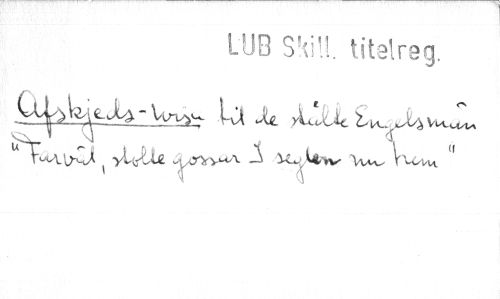 LUB Skill. titelreg.
Afskjeds-wisa til de stålte Engelsmän
"Farväl, stolte gossar I seglen nu hem"